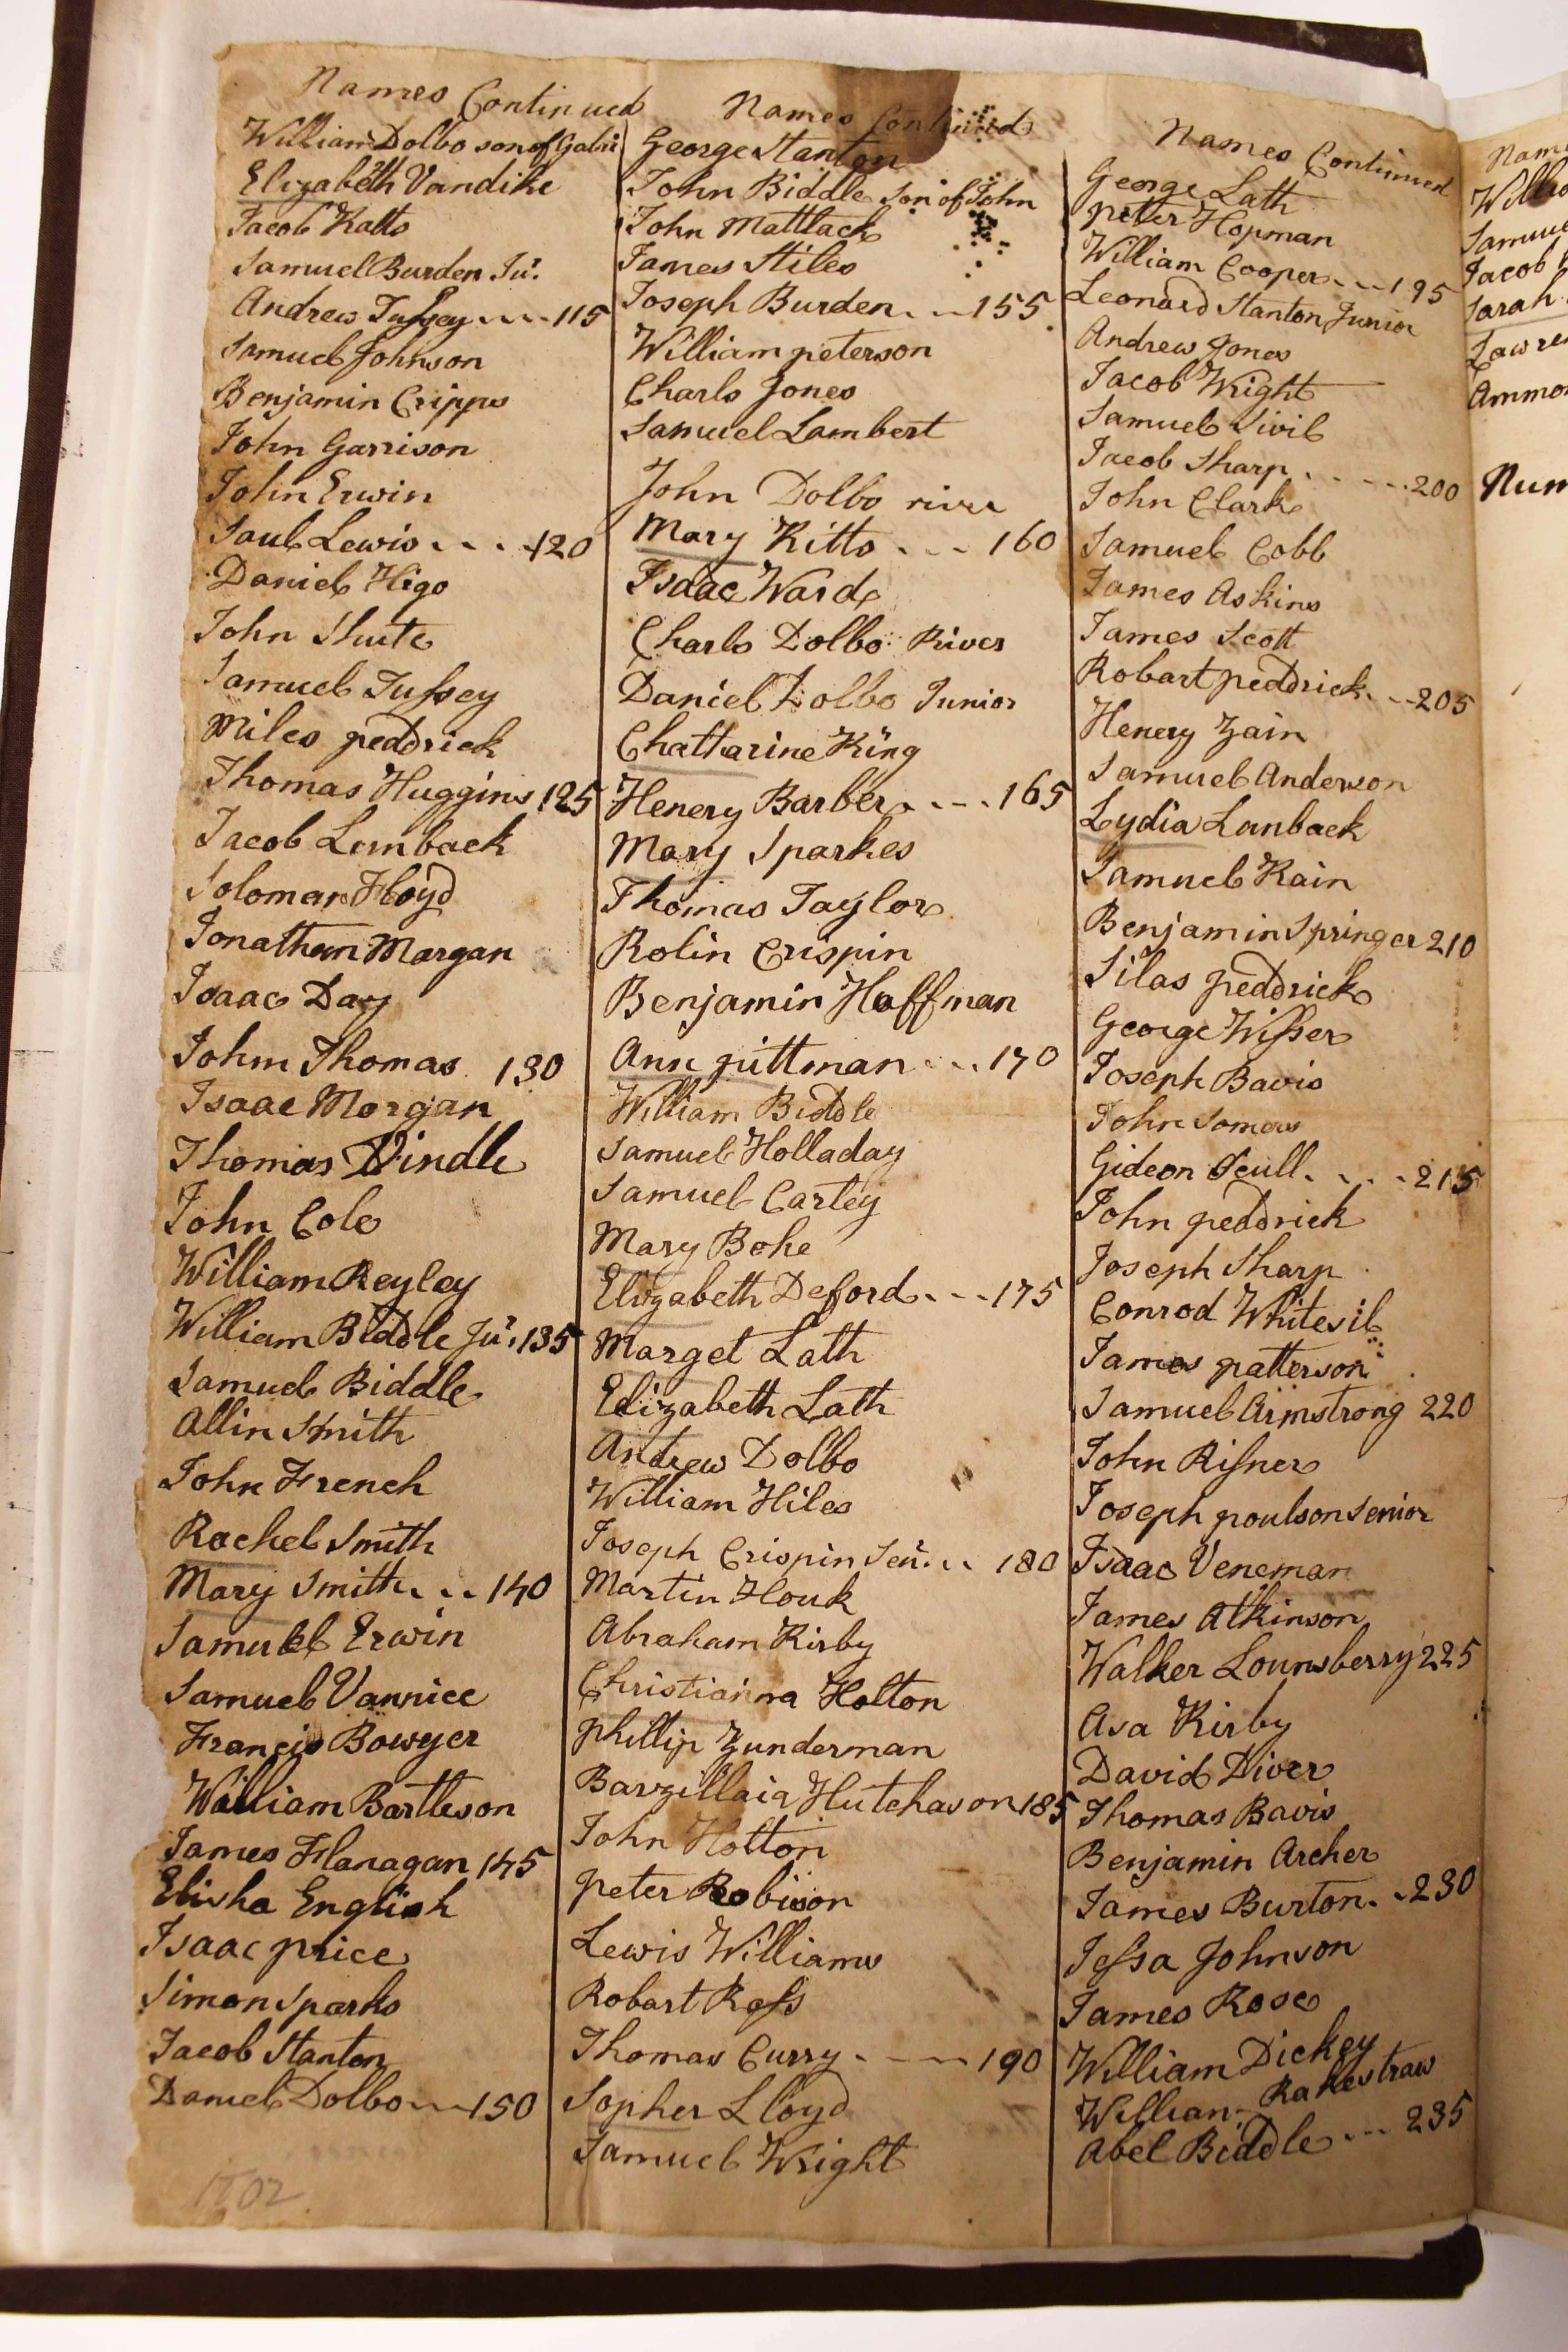 Names Continued
William Dolbo son of Gabri
Elizabeth Vandike
Jacob Katts
Samuel Burden Jur.
Andrew Tussey 115
Samuel Johnson
Benjamin Cripps
John Garrison
John Erwin
Saul Lewis 120
Daniel Higo
John Shute
Samuel Tussey
Miles peddrick
Thomas Huggins 125
Jacob Lambach
Soloman Floyd
Jonathan Morgan
Isaac Day
John Thomas 130
Isaac Morgan
Thomas Dindle
John Cole
William Reyley
William Biddle Jur. 135
Samuel Biddle
Allin Smith
John French
Rachel Smith
Mary Smith 140
Samuel Erwin
Samuel Vannice
Francis Bowyer
William Bartleson
James Flanagan 145
Elisha English
Isaac price
Simon Sparks
Jacob Stanton
Daniel Dolbo 150
1802
Names Continued
George Stanton
John Biddle Son of John
John Mattlack
James Stiles
Joseph Burden 155
William peterson
Charls Jones
Samuel Lambert
John Dolbo river
Mary Kitts 160
Isaac Ward
Charls Dolbo River
Daniel Dolbo Junior
Chattarine King
Henery Barber 165
Mary Sparkes
Thomas Taylor
Rolin Crispin
Benjamin Hoffman
Ann pittman 170
William Biddle
Samuel Holladay
Samuel Cartey
Mary Bohe
Elizabeth Deford 175
Marget Lath
Elizabeth Lath
Andrew Dolbo
William Hiles
Joseph Crispin Senr. 180
Martin Houk
Abraham Kirby
Christianna Holton
phillip Zunderman
Barzillaia Hutchason 185
John Holton
peter Robison
Lewis Williams
Robart Ross
Thomas Curry 190
Sopher Lloyd
Samuel Wright
Names Continued
George Lath
peter Hopman
William Cooper 195
Leonard Stanton Junior
Andrew Jones
Jacob Wright
Samuel Sivil
Jacob Sharp 200
John Clark
Samuel Cobb
James Askins
James Scott
Robart peddrick 205
Henery Zain
Samuel Anderson
Lydia Lanback
Samuel Kain
Benjamin Springer 210
Silas peddrick
George Wisser
Joseph Bavis
John Somers
Gideon Scull 215
John peddrick
Joseph Sharp
Conrod Whitesil
James patterson
Samuel Armstrong 220
John Risner
Joseph poulson Senior
Isaac Veneman
James Atkinson
Walker Lounsberry 225
Asa Kirby
David Diver
Thomas Bavis
Benjamin Archer
James Burton 230
Jessa Johnson
James Rose
William Dickey
William Rakestraw
Abel Biddle 235
Samue
Jacob
Sarah